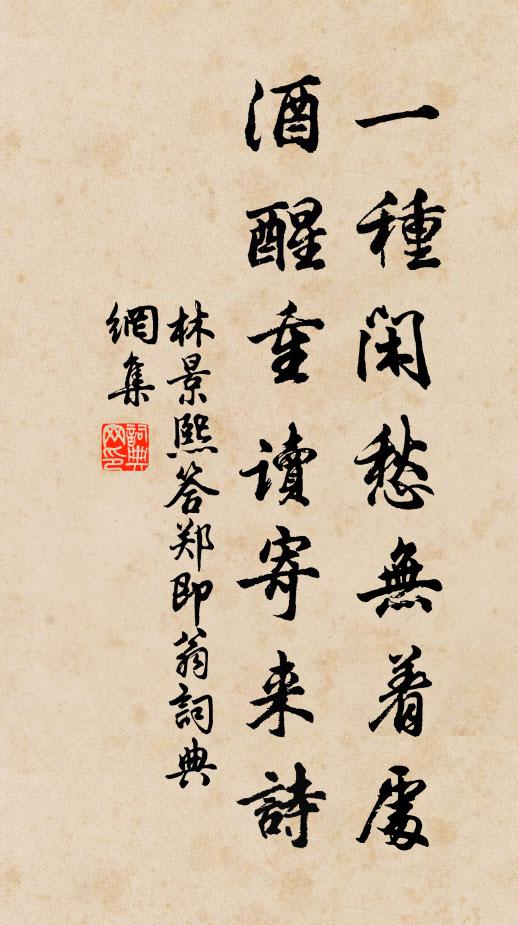 一種閑愁無着處
酒醒重读寄来詩
林景熙答郑即翁詞典
網集
詞典網印